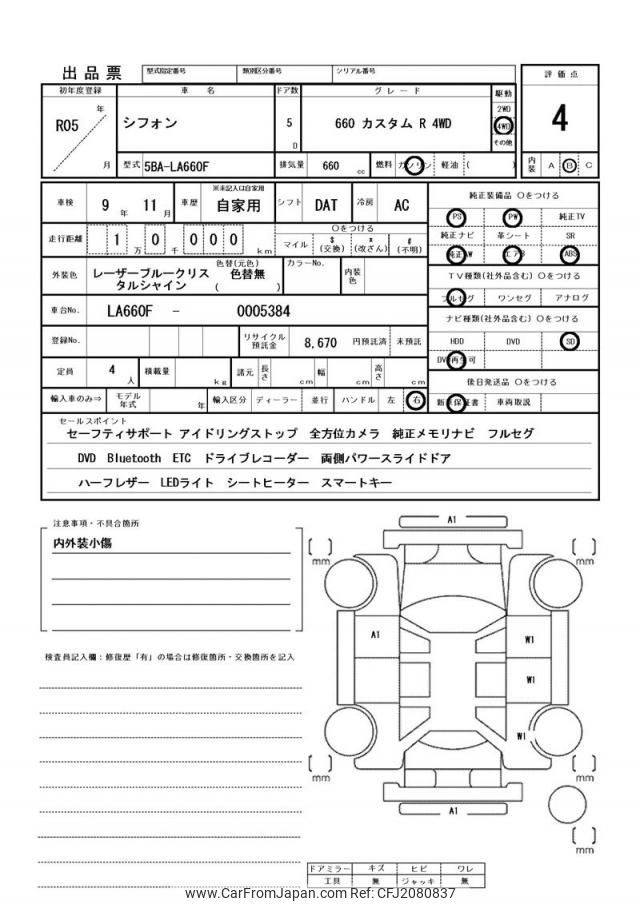 出品票 型式指定番号 類別区分番号 シリアル番号
評価点
初年度登録 車名 ドア数 グレード 駆動
R05 年 月
シフォン 5 D 660 カスタム R 4WD
2WD
4WD
その他
4
型式 5BA-LA660F 排気量 660 cc 燃料 ガソリン 軽油 ( )
内装 A B C
車検 9 年 11 月 車歴 ※未記入は自家用 自家用 シフト DAT 冷房 AC
純正装備品 〇をつける
PS PW 純正TV
走行距離 1 万 0 千 0 0 0 km
〇をつける
マイル $(交換) *(改ざん) #(不明)
純正ナビ 革シート SR
純正AW エアB ABS
外装色 レーザーブルークリスタルシャイン 色替(元色) 色替無 ( )
カラーNo. 内装色
TV種類(社外品含む) 〇をつける
フルセグ ワンセグ アナログ
車台No. LA660F - 0005384
ナビ種類(社外品含む) 〇をつける
登録No. リサイクル預託金 8,670 円預託済 未預託
HDD DVD SD
DVD再生可
定員 4 人 積載量 kg 諸元 長さ cm 幅 cm 高さ cm
後日発送品 〇をつける
輸入車のみ⇒ モデル年式 年 輸入区分 ディーラー 並行 ハンドル 左 右
新車保証書 車両取説
セールスポイント
セーフティサポート アイドリングストップ 全方位カメラ 純正メモリナビ フルセグ
DVD Bluetooth ETC ドライブレコーダー 両側パワースライドドア
ハーフレザー LEDライト シートヒーター スマートキー
注意事項・不具合箇所
内外装小傷
検査員記入欄：修復歴「有」の場合は修復箇所・交換箇所を記入
A1
mm mm
A1 W1
W1
W1
mm mm
A1
mm
ドアミラー キズ ヒビ ワレ
工具 無 ジャッキ 無
www.CarFromJapan.com Ref: CFJ2080837